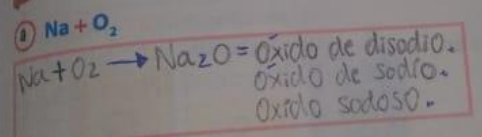 a Na + O₂
Na + O₂ → Na₂O = Óxido de disodio.
Óxido de sodio.
Oxido sodoso.